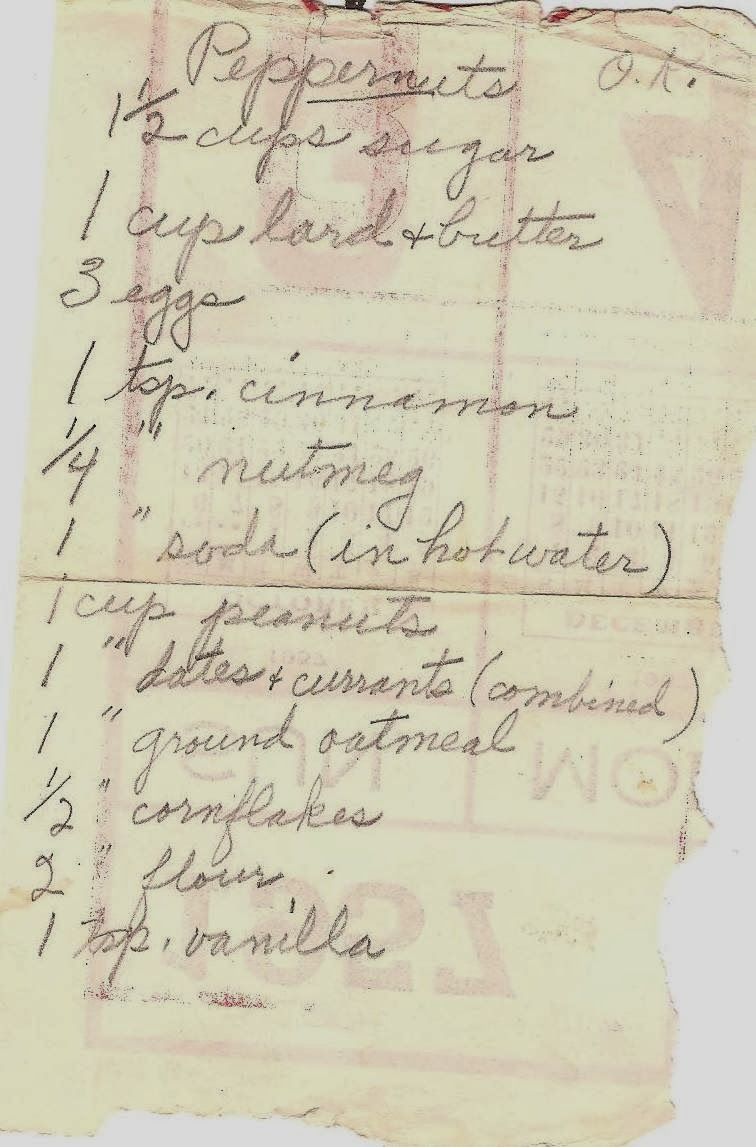 Peppernuts O.K.
1 1/2 cups sugar
1 cup lard & butter
3 eggs
1 tsp. cinnamon
1/4 " nutmeg
1 " soda (in hot water)
1 cup peanuts
1 " dates & currants (combined)
1 " ground oatmeal
1/2 " cornflakes
2 " flour
1 tsp. vanilla
3 4
DECEMBE
1957
SUN MO
1957